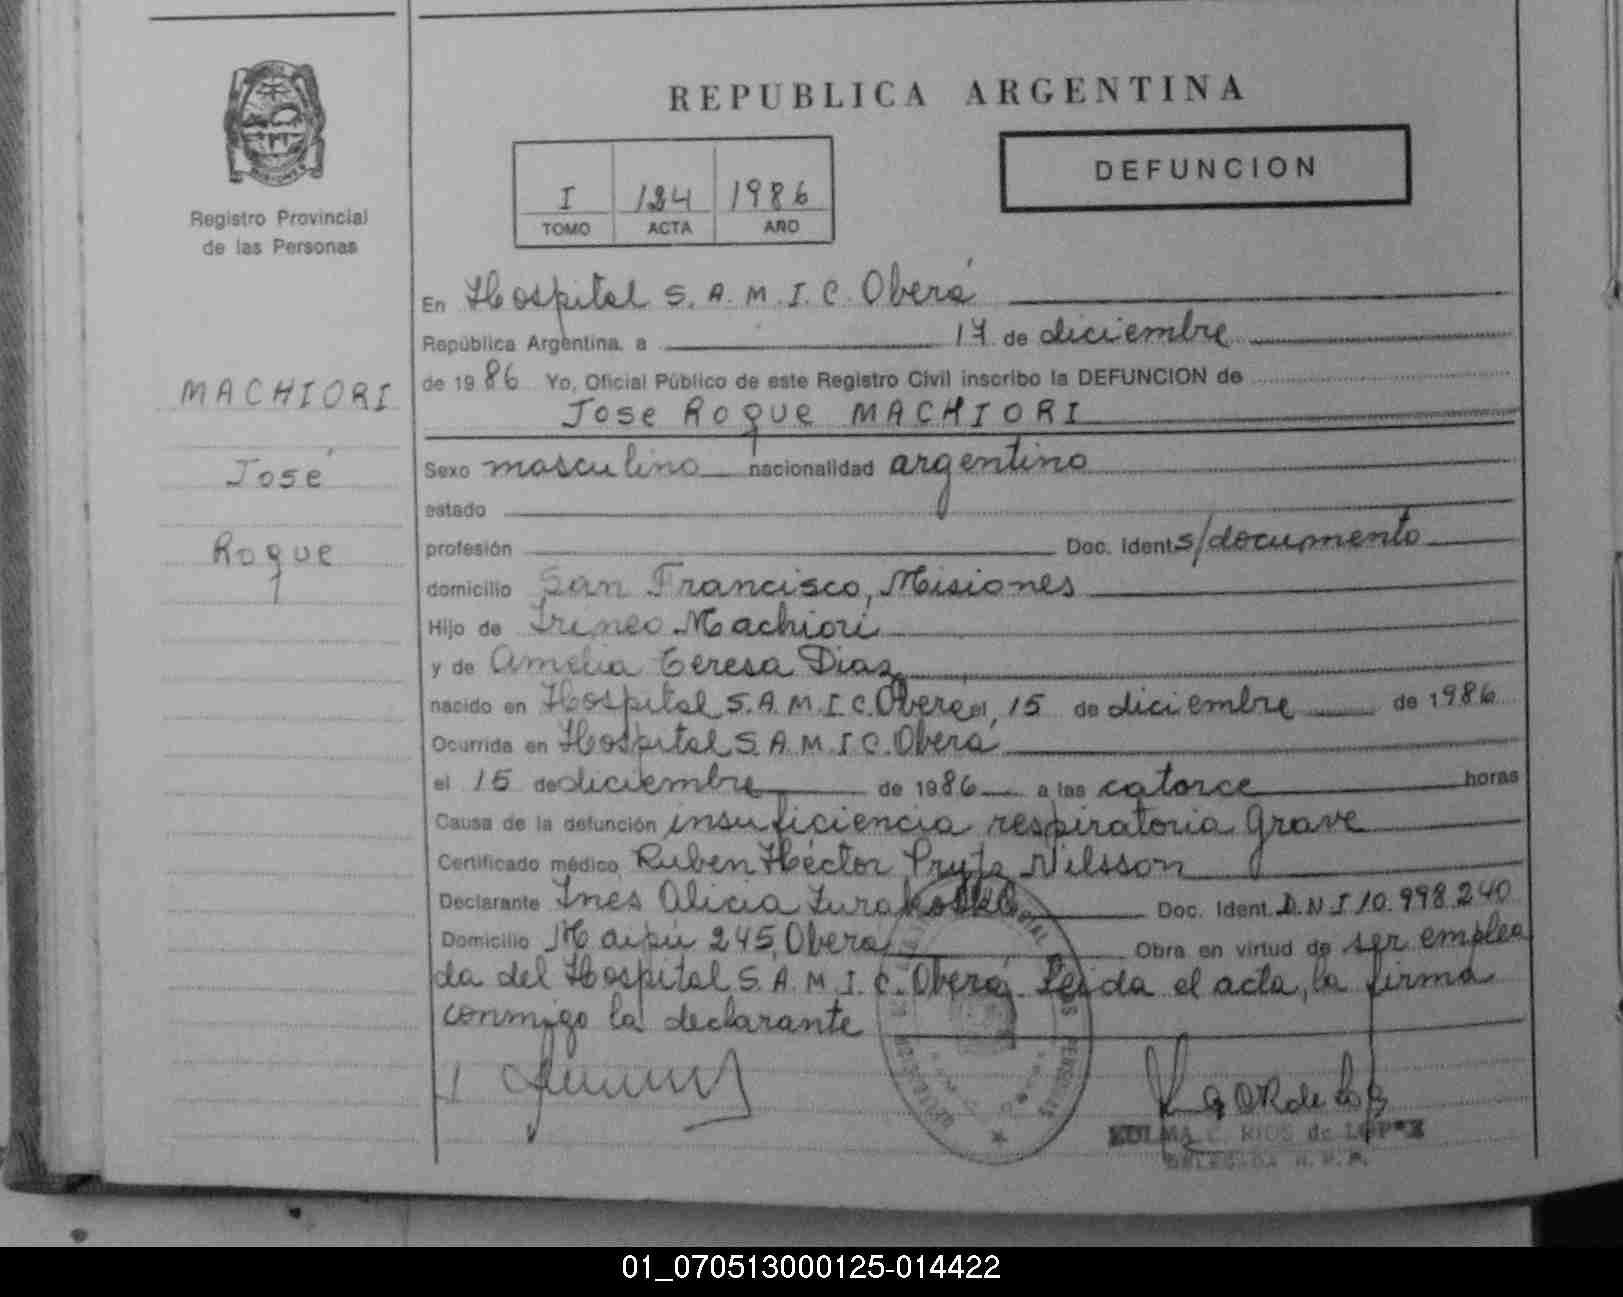 REPUBLICA ARGENTINA
DEFUNCION
I 124 1986
TOMO ACTA AÑO
Registro Provincial
de las Personas
MACHIORI
José
Roque
En Hospital S.A.M.I.C. Oberá
República Argentina, a 17 de diciembre
de 1986 Yo, Oficial Público de este Registro Civil inscribo la DEFUNCION de
Jose Roque MACHIORI
Sexo masculino nacionalidad argentino
estado
profesión Doc. Ident. s/documento
domicilio San Francisco, Misiones
Hijo de Irineo Machiori
y de Amelia Teresa Diaz
nacido en Hospital S.A.M.I.C. Oberá el, 15 de diciembre de 1986
Ocurrida en Hospital S.A.M.I.C. Oberá
el 15 de diciembre de 1986 a las catorce horas
Causa de la defunción insuficiencia respiratoria grave
Certificado médico Ruben Héctor Nilsson
Declarante Ines Alicia Doc. Ident. D.N.I 10.998.240
Domicilio Maipú 245, Oberá Obra en virtud de ser emplea
da del Hospital S.A.M.I.C. Oberá. Leida el acta, la firma
conmigo la declarante
C. RIOS de LOPEZ
DELEGADA R.P.P.
01_070513000125-014422